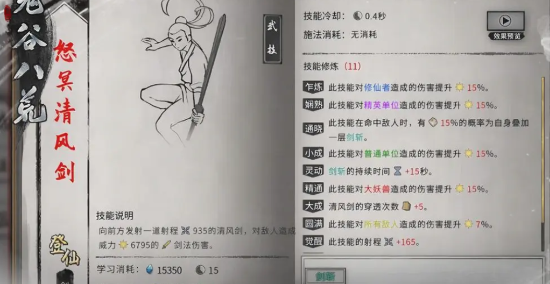 老谷八荒
怒冥清风剑
登仙
武技
技能说明
向前方发射一道射程 935的清风剑，对敌人造成
威力 6795的 剑法伤害。
学习消耗： 15350 15
技能冷却： 0.4秒
施法消耗：无消耗
效果预览
技能修炼（11）
乍炼 此技能对修仙者造成的伤害提升 15%。
娴熟 此技能对精英单位造成的伤害提升 15%。
通晓 此技能在命中敌人时，有 15%的概率为自身叠加
一层剑斩。
小成 此技能对普通单位造成的伤害提升 15%。
灵动 剑斩的持续时间 +15秒。
精通 此技能对大妖兽造成的伤害提升 15%。
大成 清风剑的穿透次数 +5。
圆满 此技能对所有敌人造成的伤害提升 7%。
觉醒 此技能的射程 +165。
剑斩